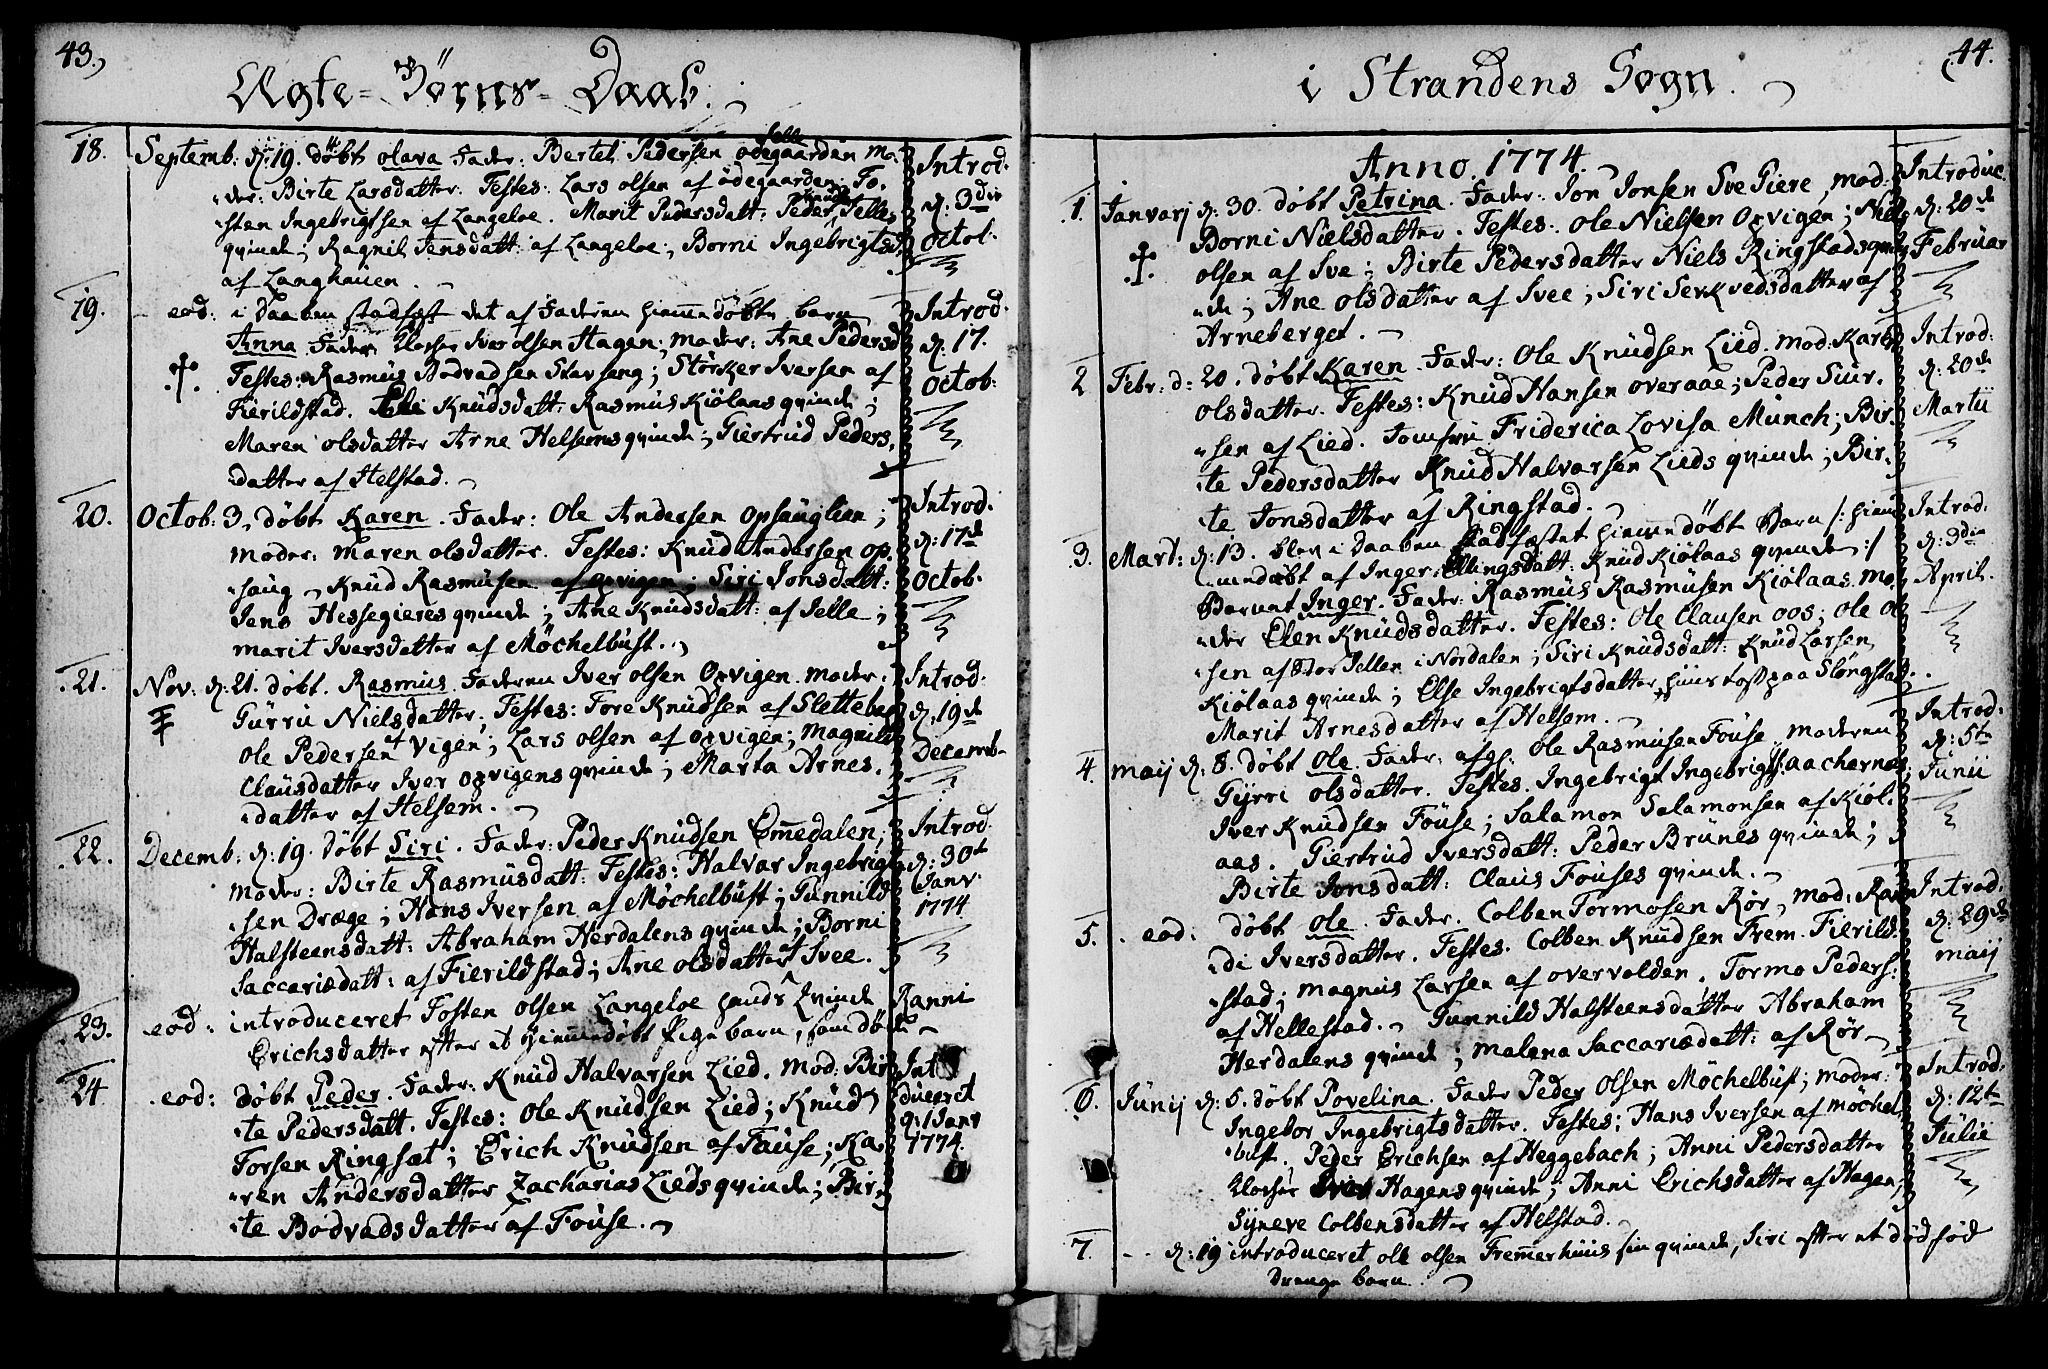 43.
Ægte-Børns-Daab.
18.
Septemb: d: 19. döbt olava Fader: Bertel Pedersen ödegaarden Mo-
der: Birte Larsdatter. Testes: Lars olsen af ödegaarden; To-
sten Ingebrigtsen af Langeloe. Marit Pedersdatt: Peder Jelles
qvinde; Ragnil Jensdatt: af Langeloe; Borni Ingebrigtsd:
af Langhauen.
Introd:
d: 3die
Octob:
19.
eod: i Daaben stadfæst det af Faderen hiemmedöbte barn
Anna Fader Iver olsen Hagen; moder: Ane Pedersd
Testes: Rasmus Bodvadsen Stavseng; Störker Iversen af
Fierildstad. Knudsdatt: Rasmus Kiölaas qvinde;
Maren olsdatter Arne Helsems qvinde; Giertrud Peders-
datter af Helstad.
Introd:
d: 17.
Octob:
20.
Octob: 3, döbt Karen. Fader: Ole Andersen Opsauglien;
moder: Maren olsdatter. Testes: Knud Andersen Op-
saug, Knud Rasmusen af opvigen; Siri Jonsdatt:
Jens Hessegieres qvinde; Ane Knudsdatt: af Jelle;
marit Iversdatter af Möchelbust.
Introd:
d: 17de
Octob:
21.
Nov: d: 21. döbt. Rasmus. Faderen Iver olsen Opvigen. moder:
Gurru Nielsdatter; Testes: Tore Knudsen af Slettebach
Ole Pedersen Vigen; Lars olsen af opvigen; Magnild
Clausdatter Iver opvigens qvinde; Marta Arnes-
datter af Helsem.
Introd:
d: 19de
Decemb
22.
Decemb: d: 19. döbt Siri. Fader: Peder Knudsen Emmedalen;
moder: Birte Rasmusdatt: Testes: Halvar Ingebrigt-
sen Dræge; Hans Iversen af Möchelbust; Gunnild
Halsteensdatt: Abraham Herdalens qvinde; Borni
Saccariædatt: af Fierildstad; Ane olsdatter af Svee.
Introd
d: 30te
Janv.
1774
23.
eod: introduceret Tosten olsen Langeloe hands qvinde Ranni
Erichsdatter efter et hiemmedöbt Pige barn, som döde
24
eod: döbt Peder. Fader: Knud Halvarsen Lied. Mod: Bir
te Pedersdatt. Testes: Ole Knudsen Lied; Knud
Torsen Ringsæt; Erich Knudsen af Fause; Ka-
ren Andersdatter Zacharias Lieds qvinde; Bir-
te Bodvadsdatter af Fouse.
Int
duceret
d: 1 Janv
1774.
44.
i Strandens Sogn.
Anno. 1774.
1.
Janvarj d: 30. döbt Petrina. Fader: Jon Jonsen Sve Giere, mod:
Borni Nielsdatter. Testes: Ole Nielsen Opvigen; Niels
olsen af Sve; Birte Pedersdatter Niels Ringstads qvin
de; Ane olsdatter af Svee; Siri Serkvedsdatter af
Arneberget.
Introduc.
d: 20de
Februar
2
Febr: d: 20. döbt Karen. Fader: Ole Knudsen Lied. mod: Karen
olsdatter. Testes: Knud Hansen overaae; Peder Siur-
sen af Lied. Jomfru Friderica Lovisa Munch; Bir-
te Pedersdatter Knud Halvarsen Lieds qvinde; Bir-
te Jonsdatter af Ringstad.
Introd:
d: 20de
Martii
3.
Mart: d: 13. blev i Daaben stadfæstet hiemmedöbt Barn /: hiem
mendöbt af Inger Ellingsdatt: Knud Kiölaas qvinde :/
Barnet Inger. Fader: Rasmus Rasmusen Kiölaas. Mo-
der Elen Knudsdatter. Testes: Ole Clausen oos; Ole Ol
sen af Stor Jellen i Nordalen; Siri Knudsdatt: Knud Larsen
Kiölaas qvinde; Else Ingebrigtsdatter paa Slöngstad.
Marit Arnesdatter af Helsem.
Introd:
d: 3die
April.
4.
maij d: 8. döbt Ole. Fader: Ole Rasmusen Fouse moderen
Gyrri olsdatter. Testes. Ingebrigt Ingebrigts: aachernes;
Iver Knudsen Fouse; Salamon Salamonsen af Kiöl-
aas. Giertrud Iversdatt: Peder Brunes qvinde;
Birte Jonsdatt: Claus Fouses qvinde.
Introd:
d: 5te
Junii
5.
eod: döbt Ole. Fader. Colben Tormosen Rör, mod: Ran
di Iversdatter. Testes. Colben Knudsen Frem-Fierild-
stad; Magnus Larsen af overvolden. Tormo Peders:
af Hellestad. Gunnild Halsteensdatter Abraham
Herdalens qvinde; malena Saccariædatt: af Rör
Introd:
d: 29de
maij
6.
Junij d: 5. döbt Povelina. Fader Peder Olsen Möchelbust; moder:
Ingebor Ingebrigtsdatter. Testes: Hans Iversen af möchel
bust. Peder Erichsen af Heggebach; Anni Pedersdatter
Iver Hagens qvinde; Anni Erichsdatter af Hagen,
Syneve Colbensdatter af Helstad.
Introd:
d: 12te
Julii
7.
d: 19 introduceret ole olsen Fremmerhuus sin qvinde, Siri efter et dödföd
Drenge barn.